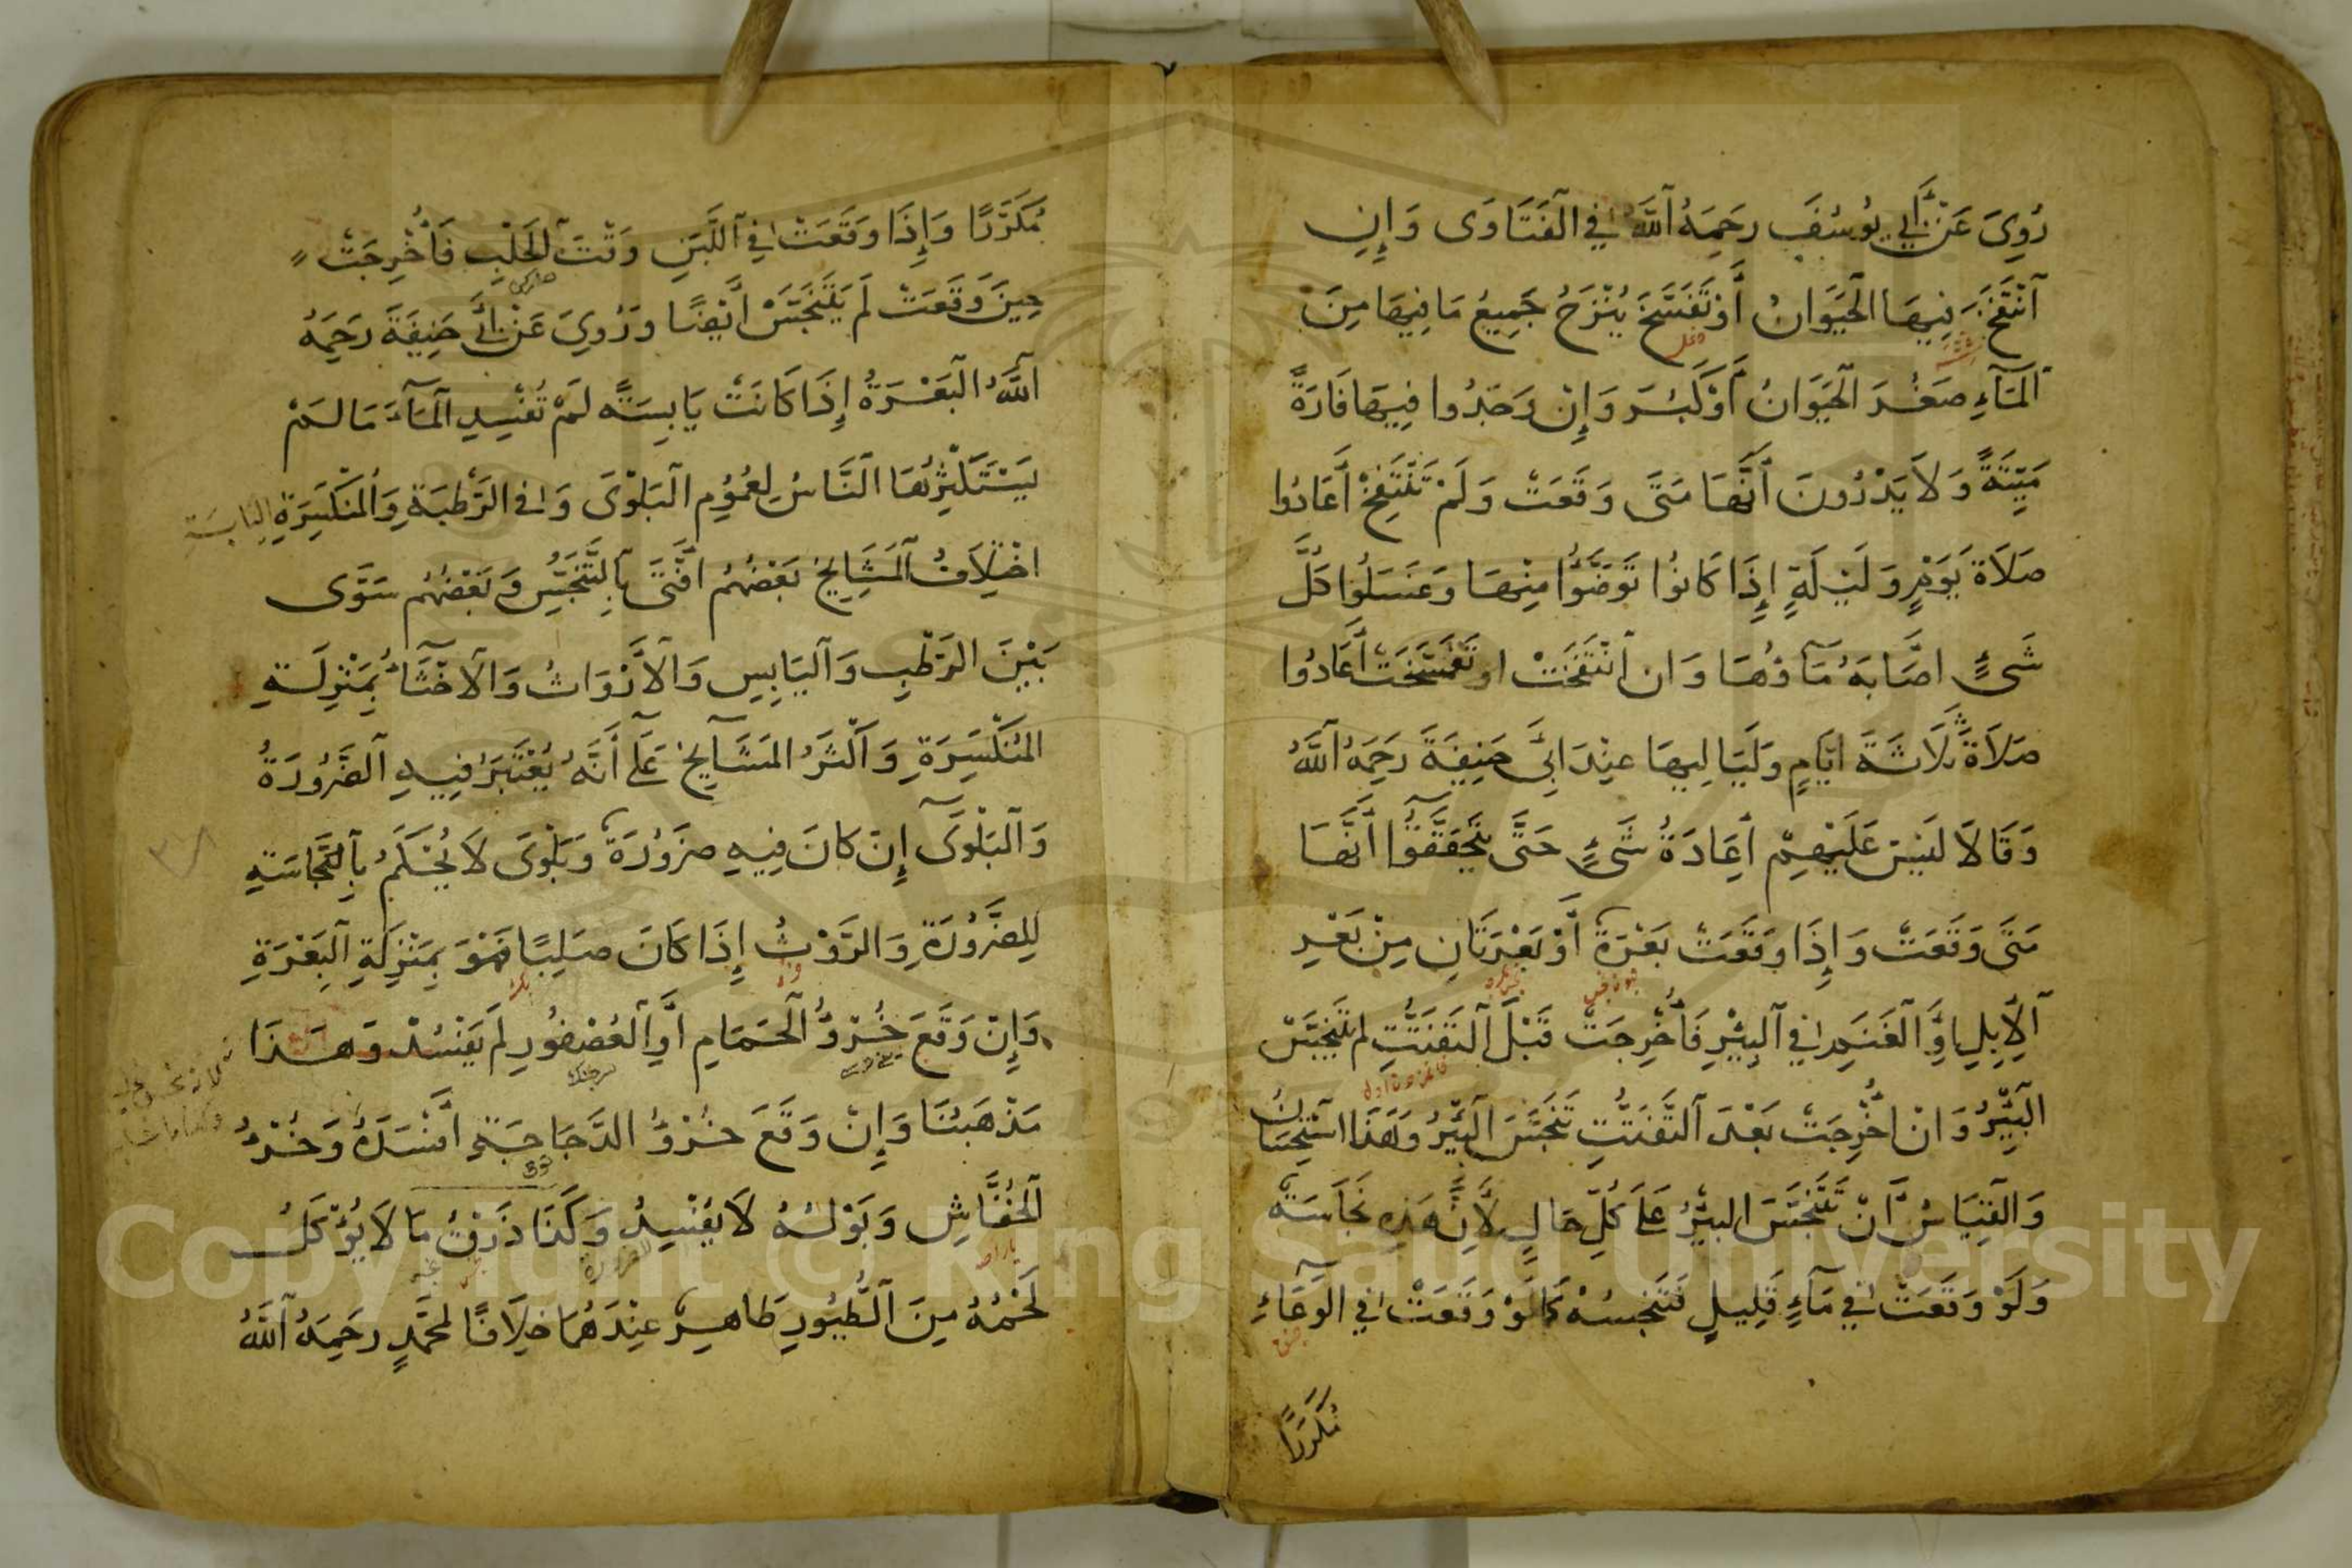 رُوِيَ عَنْ أَبِي يُوسُفَ رَحِمَهُ اللَّهُ فِي الْفَتَاوَى وَإِنِ
انْتَفَخَ فِيهَا الْحَيَوَانُ أَوْ تَفَسَّخَ يُنْزَحُ جَمِيعُ مَا فِيهَا مِنَ
الْمَاءِ صَغُرَ الْحَيَوَانُ أَوْ كَبُرَ وَإِنْ وَجَدُوا فِيهَا فَارَةً
مَيِّتَةً وَلَا يَدْرُونَ أَنَّهَا مَتَى وَقَعَتْ وَلَمْ تَنْتَفِخْ أَعَادُوا
صَلَاةَ يَوْمٍ وَلَيْلَةٍ إِذَا كَانُوا تَوَضَّؤُا مِنْهَا وَغَسَلُوا كُلَّ
شَيْءٍ اصَابَهُ مَاؤُهَا وَان انْتَفَخَتْ او تَفَسَّخَتْ أَعَادُوا
صَلَاةَ ثَلَاثَةَ ايَّامٍ وَلَيَالِيهَا عِنْدَ ابِي حَنِيفَةَ رَحِمَهُ اللَّهُ
وَقَالَا لَيْسَ عَلَيْهِمْ اعَادَةُ شَيْءٍ حَتَّى يَتَحَقَّقُوا أَنَّهَا
مَتَى وَقَعَتْ وَإِذَا وَقَعَتْ بَعْرَةٌ أَوْ بَعْرَتَانِ مِنْ بَعْرِ
الْإِبِلِ اوِ الْغَنَمِ فِي الْبِئْرِ فَأُخْرِجَتْ قَبْلَ التَّفَتُّتِ لم تَتَنَجَّسْ
الْبِئْرُ وَانْ اخْرِجَتْ بَعْدَ التَّفَتُّتِ تَنَجَّسَ الْبِئْرُ وَهَذَا اسْتِحْسَانٌ
وَالْقِيَاسُ أَنْ تَتَنَجَّسَ البِئْرُ عَلَى كُلِّ حَالٍ لِأَنَّ هَذِهِ نَجَاسَةٌ
وَلَوْ وَقَعَتْ فِي مَاءٍ قَلِيلٍ فَتُنَجِّسُهُ كَمَا لَوْ وَقَعَتْ فِي الْوِعَاءِ
مُكَرَّرًا
مُكَرَّرًا وَإِذَا وَقَعَتْ فِي اللَّبَنِ وَقْتَ الْحَلْبِ فَأُخْرِجَتْ
حِينَ وَقَعَتْ لَمْ يَتَنَجَّسْ أَيْضًا وَرُوِيَ عَنْ أَبِي حَنِيفَةَ رَحِمَهُ
اللَّهُ الْبَعْرَةُ إِذَا كَانَتْ يَابِسَةً لَمْ تُفْسِدِ الْمَاءَ مَا لَمْ
يَسْتَكْثِرُهَا النَّاسُ لِعُمُومِ الْبَلْوَى وَفِي الرَّطْبَةِ وَالْمُنْكَسِرَةِ اليابسة
اخْتِلَافُ الْمَشَايِخِ بَعْضُهُمْ افْتَى بِالتَّنَجُّسِ وَبَعْضُهُمْ سَوَّى
بَيْنَ الرَّطْبِ وَالْيَابِسِ وَالْأَرْوَاثُ وَالْاخْثَاءُ بِمَنْزِلَةِ
الْمُنْكَسِرَةِ وَأَكْثَرُ الْمَشَايِخِ عَلَى أَنَّهُ يُعْتَبَرُ فِيهِ الضَّرُورَةُ
وَالْبَلْوَى إِنْ كَانَ فِيهِ ضَرُورَةٌ وَبَلْوَى لَا يُحْكَمُ بِالنَّجَاسَةِ
لِلضَّرُورَةِ وَالرَّوْثُ إِذَا كَانَ صَلِبًا فَهُوَ بِمَنْزِلَةِ الْبَعْرَةِ
وَإِنْ وَقَعَ خُرْؤُ الْحَمَامِ أَوِ الْعُصْفُورِ لَمْ يَفْسُدْ وَهَذَا
مَذْهَبُنَا وَإِنْ وَقَعَ خُرْؤُ الدَّجَاجَةِ افْسَدَهُ وَخُرْؤُ
الْخُفَّاشِ وَبَوْلُهُ لَا يُفْسِدُ وَكَذَا ذَرْقُ مَا لَا يُؤْكَلُ
لَحْمُهُ مِنَ الطُّيُورِ طَاهِرٌ عِنْدَهُمَا خِلَافًا لِمُحَمَّدٍ رَحِمَهُ اللَّهُ
٣٨
Copyright © King Saud University